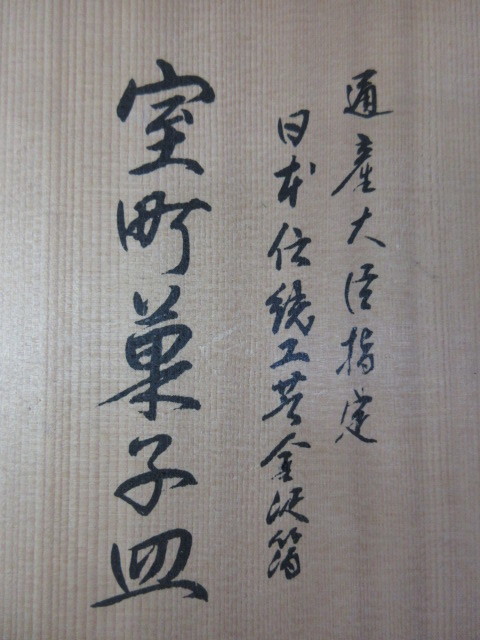 通産大臣指定
日本伝統工芸金沢箔
室町菓子皿